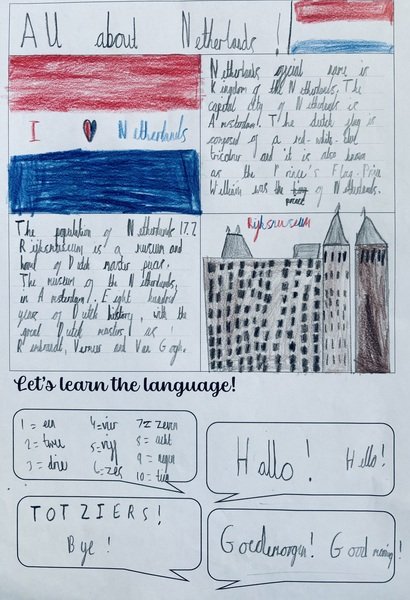 All about Netherlands !
I Netherlands
Netherlands official name is
Kingdom of the Netherlands. The
capital city of Netherlands is
Amsterdam. The dutch flag is
composed of a red-white-blue
tricolour and it is also known
as the Prince's Flag. Prin
William was the
prince
of Netherlands.
The population of Netherlands 17.7
Rijksmuseum is a museum and
home of Dutch master pieces.
The museum of the Netherlands,
in Amsterdam! Eight hundred
years of Dutch history, with the
great Dutch masters, as
Rembrandt, Vermeer and Van Gogh.
Rijksmuseum
Let's learn the language!
1 = een
2 = twee
3 = drie
4 = vier
5 = vijf
6 = zes
7 = zeven
8 = acht
9 = negen
10 = tien
Hallo! Hello!
TOT ZIERS!
Bye!
Goedemorgen! Good morning!